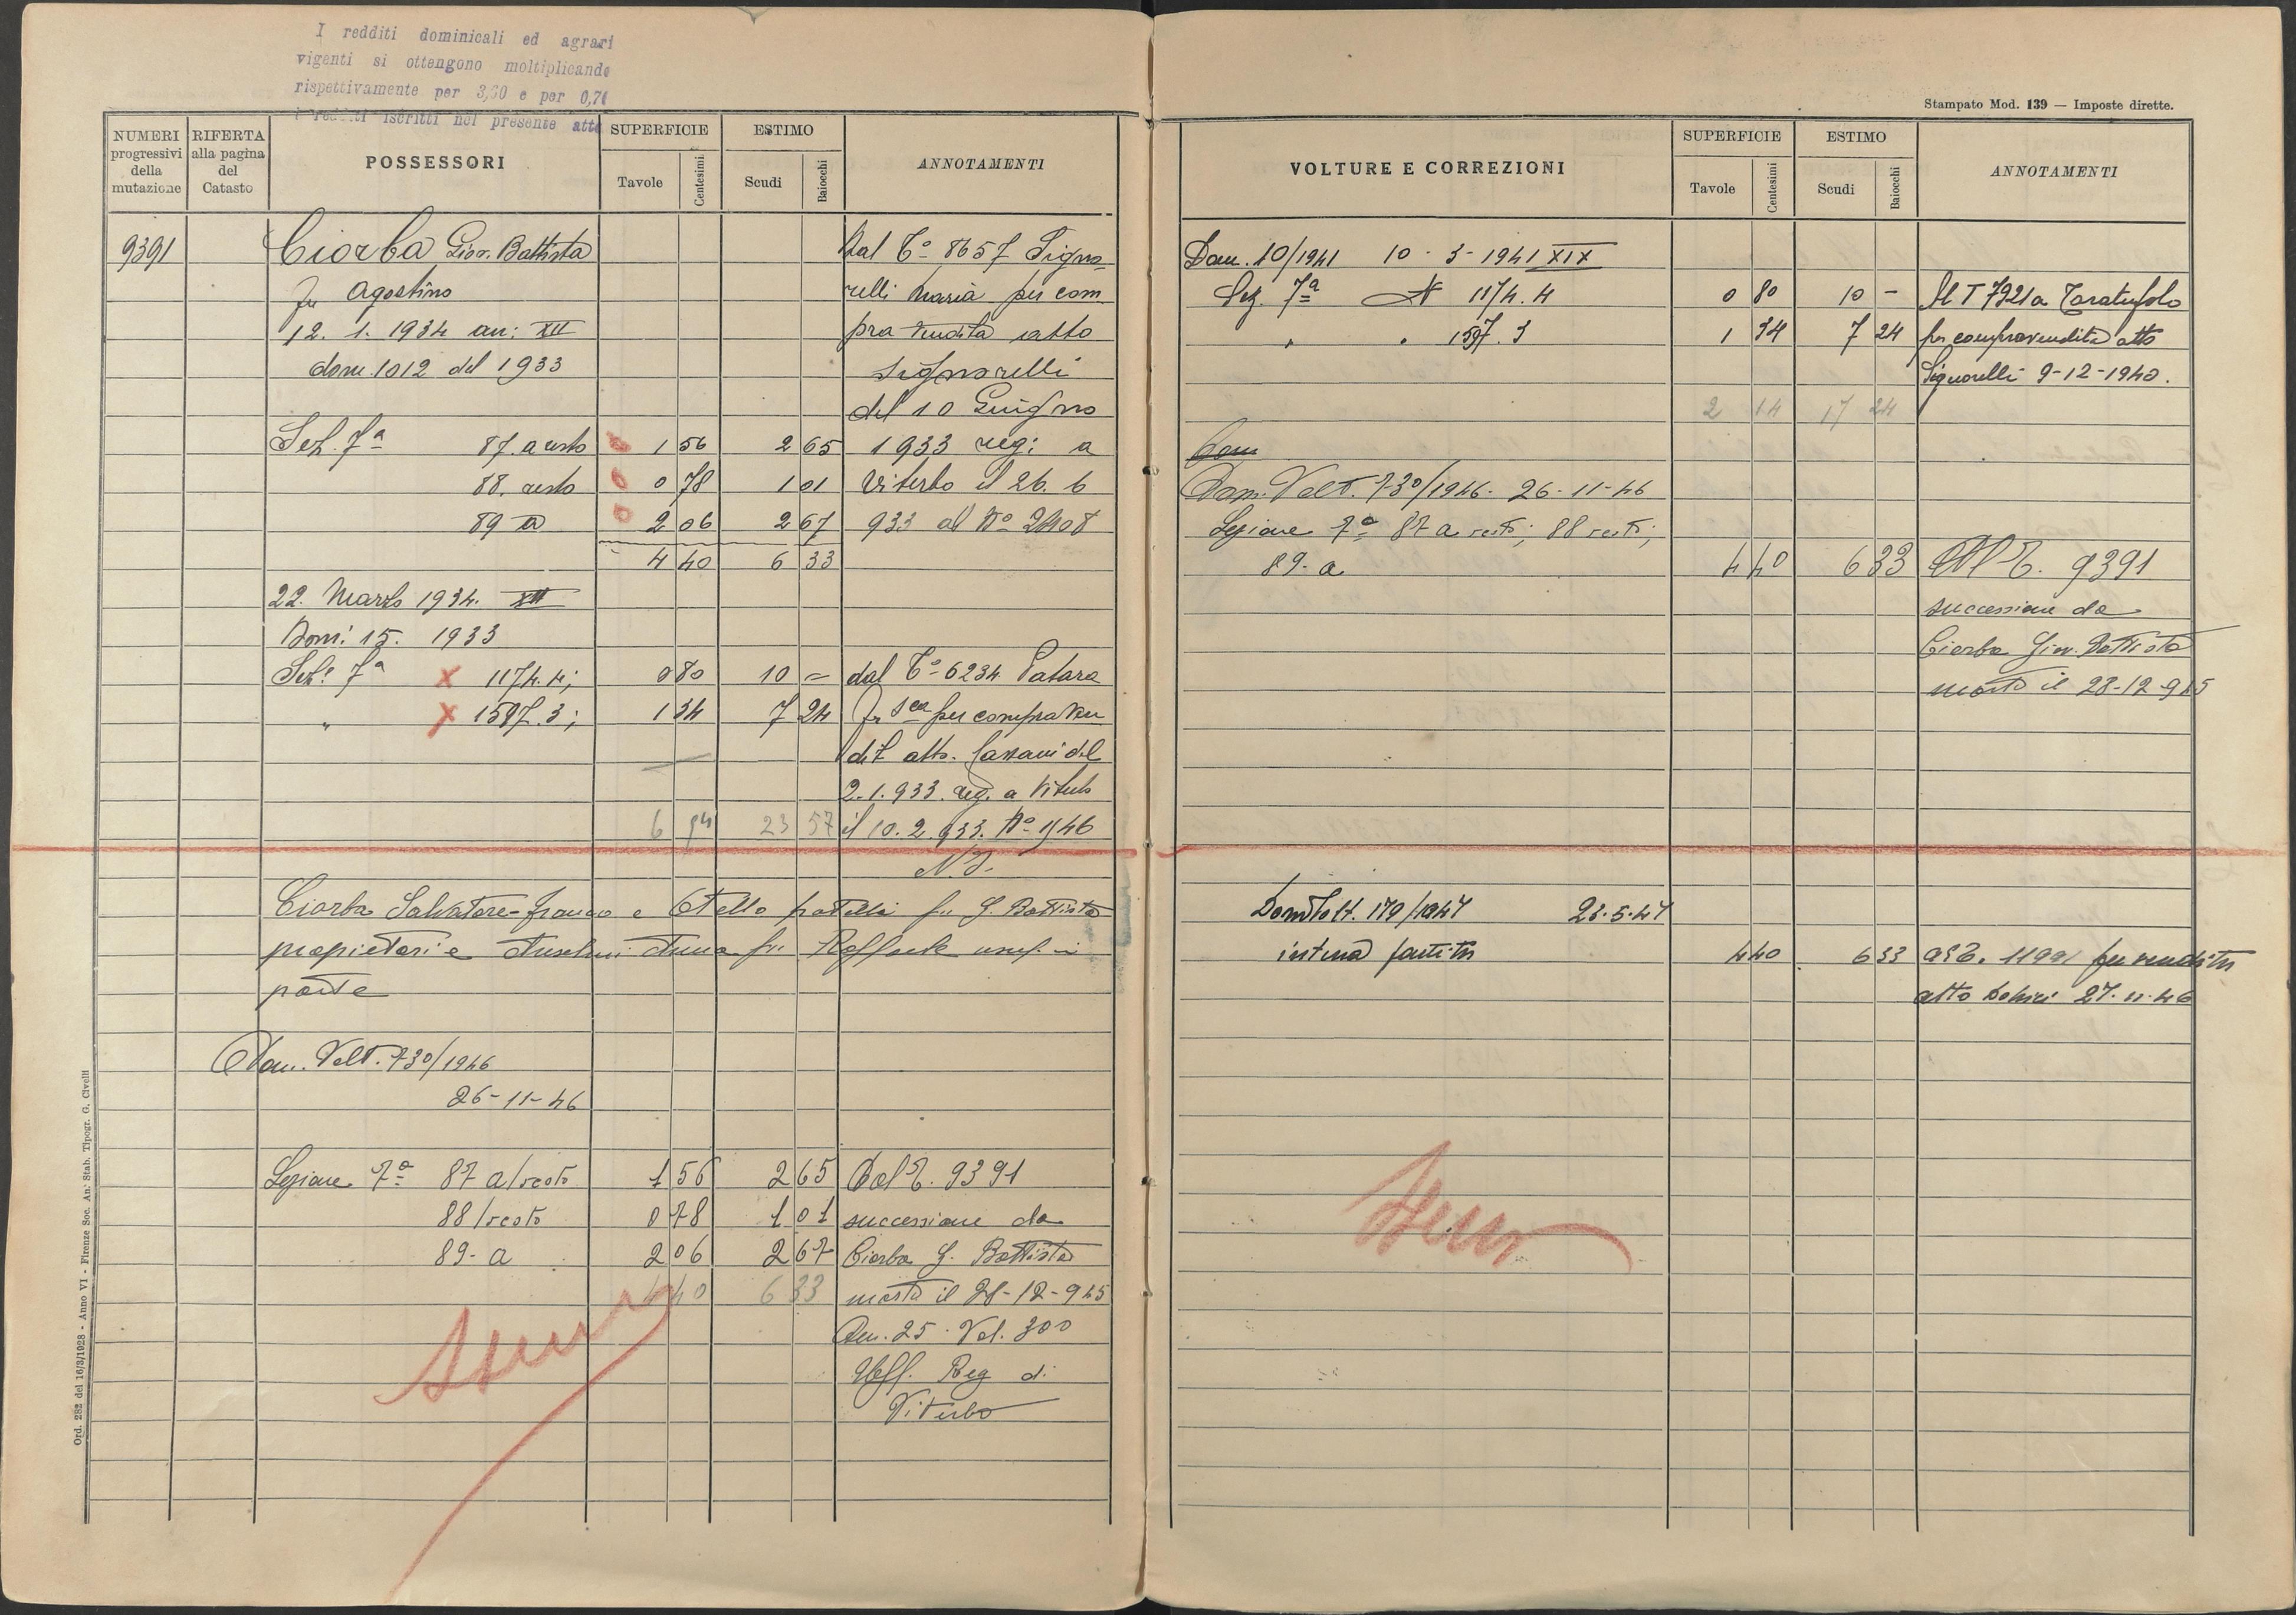 I redditi dominicali ed agrari
vigenti si ottengono moltiplicando
rispettivamente per 3,60 e per 0,7
i redditi iscritti nel presente atto
NUMERI progressivi della mutazione
RIFERTA alla pagina del Catasto
POSSESSORI
SUPERFICIE
Tavole
Centesimi
ESTIMO
Scudi
Baiocchi
ANNOTAMENTI
9391 Ciorba Giov. Battista Dal T.o 8657 Signo
fu Agostino relli Maria per com
12. 1. 1934 an: XII pra vendita atto
dom. 1012 del 1933 Signorelli
del 10 Giugno
Sez. 7a 87. a resto 1 56 2 65 1933 reg: a
88. resto 0 78 1 01 Viterbo il 26. 6
89 a 2 06 2 67 933 al No 2408
4 40 6 33
22. Marzo 1934. XII
Dom: 15. 1933
Sez. 7a X 1174.4; 0 80 10 = dal T.o 6234 Patara
" X 1597.3; 1 34 7 24 per compraven
dit atto
2.1.933. reg. a Viterbo
6 54 23 57 il 10. 2. 933. No 1946
N.J.
Ciorba Salvatore-franco e Otello fratelli fu G. Battista
proprietari e Anselmi Anna fu Raffaele usuf. in
parte
Dom. Volt. 730/1946
26-11-46
Sezione 7a 87 a/resto 1 56 2 65 Dal T. 9391
88/resto 0 78 1 01 successione da
89-a 2 06 2 67 Ciorba G. Battista
4 40 6 33 morto il 28-12-945
Den. 25. Vol. 300
Uff. Reg di
Viterbo
Ord. 282 del 16/3/1928 - Anno VI - Firenze Soc. An. Stab. Tipogr. G. Civelli
Stampato Mod. 139 — Imposte dirette.
VOLTURE E CORREZIONI
SUPERFICIE
Tavole
Centesimi
ESTIMO
Scudi
Baiocchi
ANNOTAMENTI
Dom. 10/1941 10-3-1941 XIX
Sez. 7a N 1174.4 0 80 10 - Al T 7921 a Taratufolo
" " 1597.3 1 34 7 24 per compravendita atto
Signorelli 9-12-1940.
2 14 17 24
Dom
Dom. Volt. 730/1946. 26-11-46
Sezione 7a 87 a resto; 88 resto;
89-a 4 40 6 33 Al T. 9391
successione da
Ciorba Giov. Battista
morto il 28-12-945
Dom Volt. 179/1947 23.5.47
intera partita 4 40 6 33 al T. 11991 per vendita
atto 27.11.46